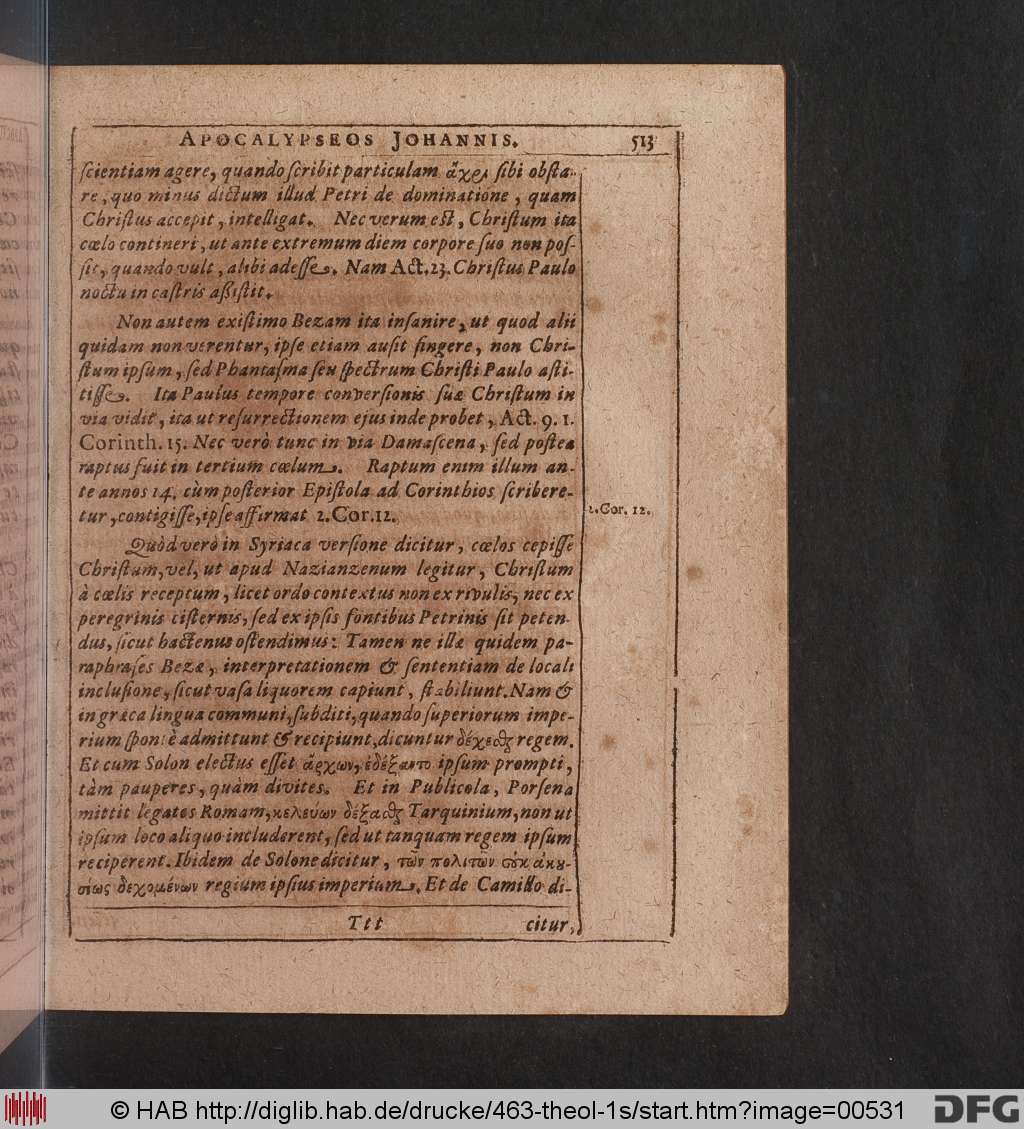 APOCALYPSEOS JOHANNIS. 513
ſcientiam agere, quando ſcribit particulam ἄχρι ſibi obſta-
re, quo minus dictum illud Petri de dominatione, quam
Chriſtus accepit, intelligat. Nec verum eſt, Chriſtum ita
cœlo contineri, ut ante extremum diem corpore ſuo non poſ-
ſit, quando vult, alibi adeſſe. Nam Act. 23. Chriſtus Paulo
noctu in caſtris aßiſtit.
Non autem exiſtimo Bezam ita inſanire, ut quod alii
quidam non verentur, ipſe etiam auſit fingere, non Chri-
ſtum ipſum, ſed Phantaſma ſeu ſpectrum Chriſti Paulo aſti-
tiſſe. Ita Paulus tempore converſionis ſuæ Chriſtum in
via vidit, ita ut reſurrectionem ejus inde probet, Act. 9. 1.
Corinth. 15. Nec verò tunc in via Damaſcena, ſed poſtea
raptus fuit in tertium cœlum. Raptum enim illum an-
te annos 14. cùm poſterior Epiſtola ad Corinthios ſcribere-
tur, contigiſſe, ipſe affirmat 2. Cor. 12.
2. Cor. 12.
Quòd verò in Syriaca verſione dicitur, cœlos cepiſſe
Chriſtum, vel, ut apud Nazianzenum legitur, Chriſtum
à cœlis receptum, licet ordo contextus non ex rivulis, nec ex
peregrinis ciſternis, ſed ex ipſis fontibus Petrinis ſit peten-
dus, ſicut hactenus oſtendimus: Tamen ne illæ quidem pa-
raphraſes Bezæ, interpretationem & ſententiam de locali
incluſione, ſicut vaſa liquorem capiunt, ſtabiliunt. Nam &
in græca lingua communi, ſubditi, quando ſuperiorum impe-
rium ſponte admittunt & recipiunt, dicuntur δέχεσθαι regem.
Et cum Solon electus eſſet ἄρχων, ἐδέξαντο ipſum prompti,
tàm pauperes, quàm divites. Et in Publicola, Porſena
mittit legatos Romam, κελεύων δέξασθαι Tarquinium, non ut
ipſum loco aliquo includerent, ſed ut tanquam regem ipſum
reciperent. Ibidem de Solone dicitur, τῶν πολιτῶν οὐκ ἀκου-
σίως δεχομένων regium ipſius imperium. Et de Camillo di-
Ttt citur,
© HAB http://diglib.hab.de/drucke/463-theol-1s/start.htm?image=00531
DFG